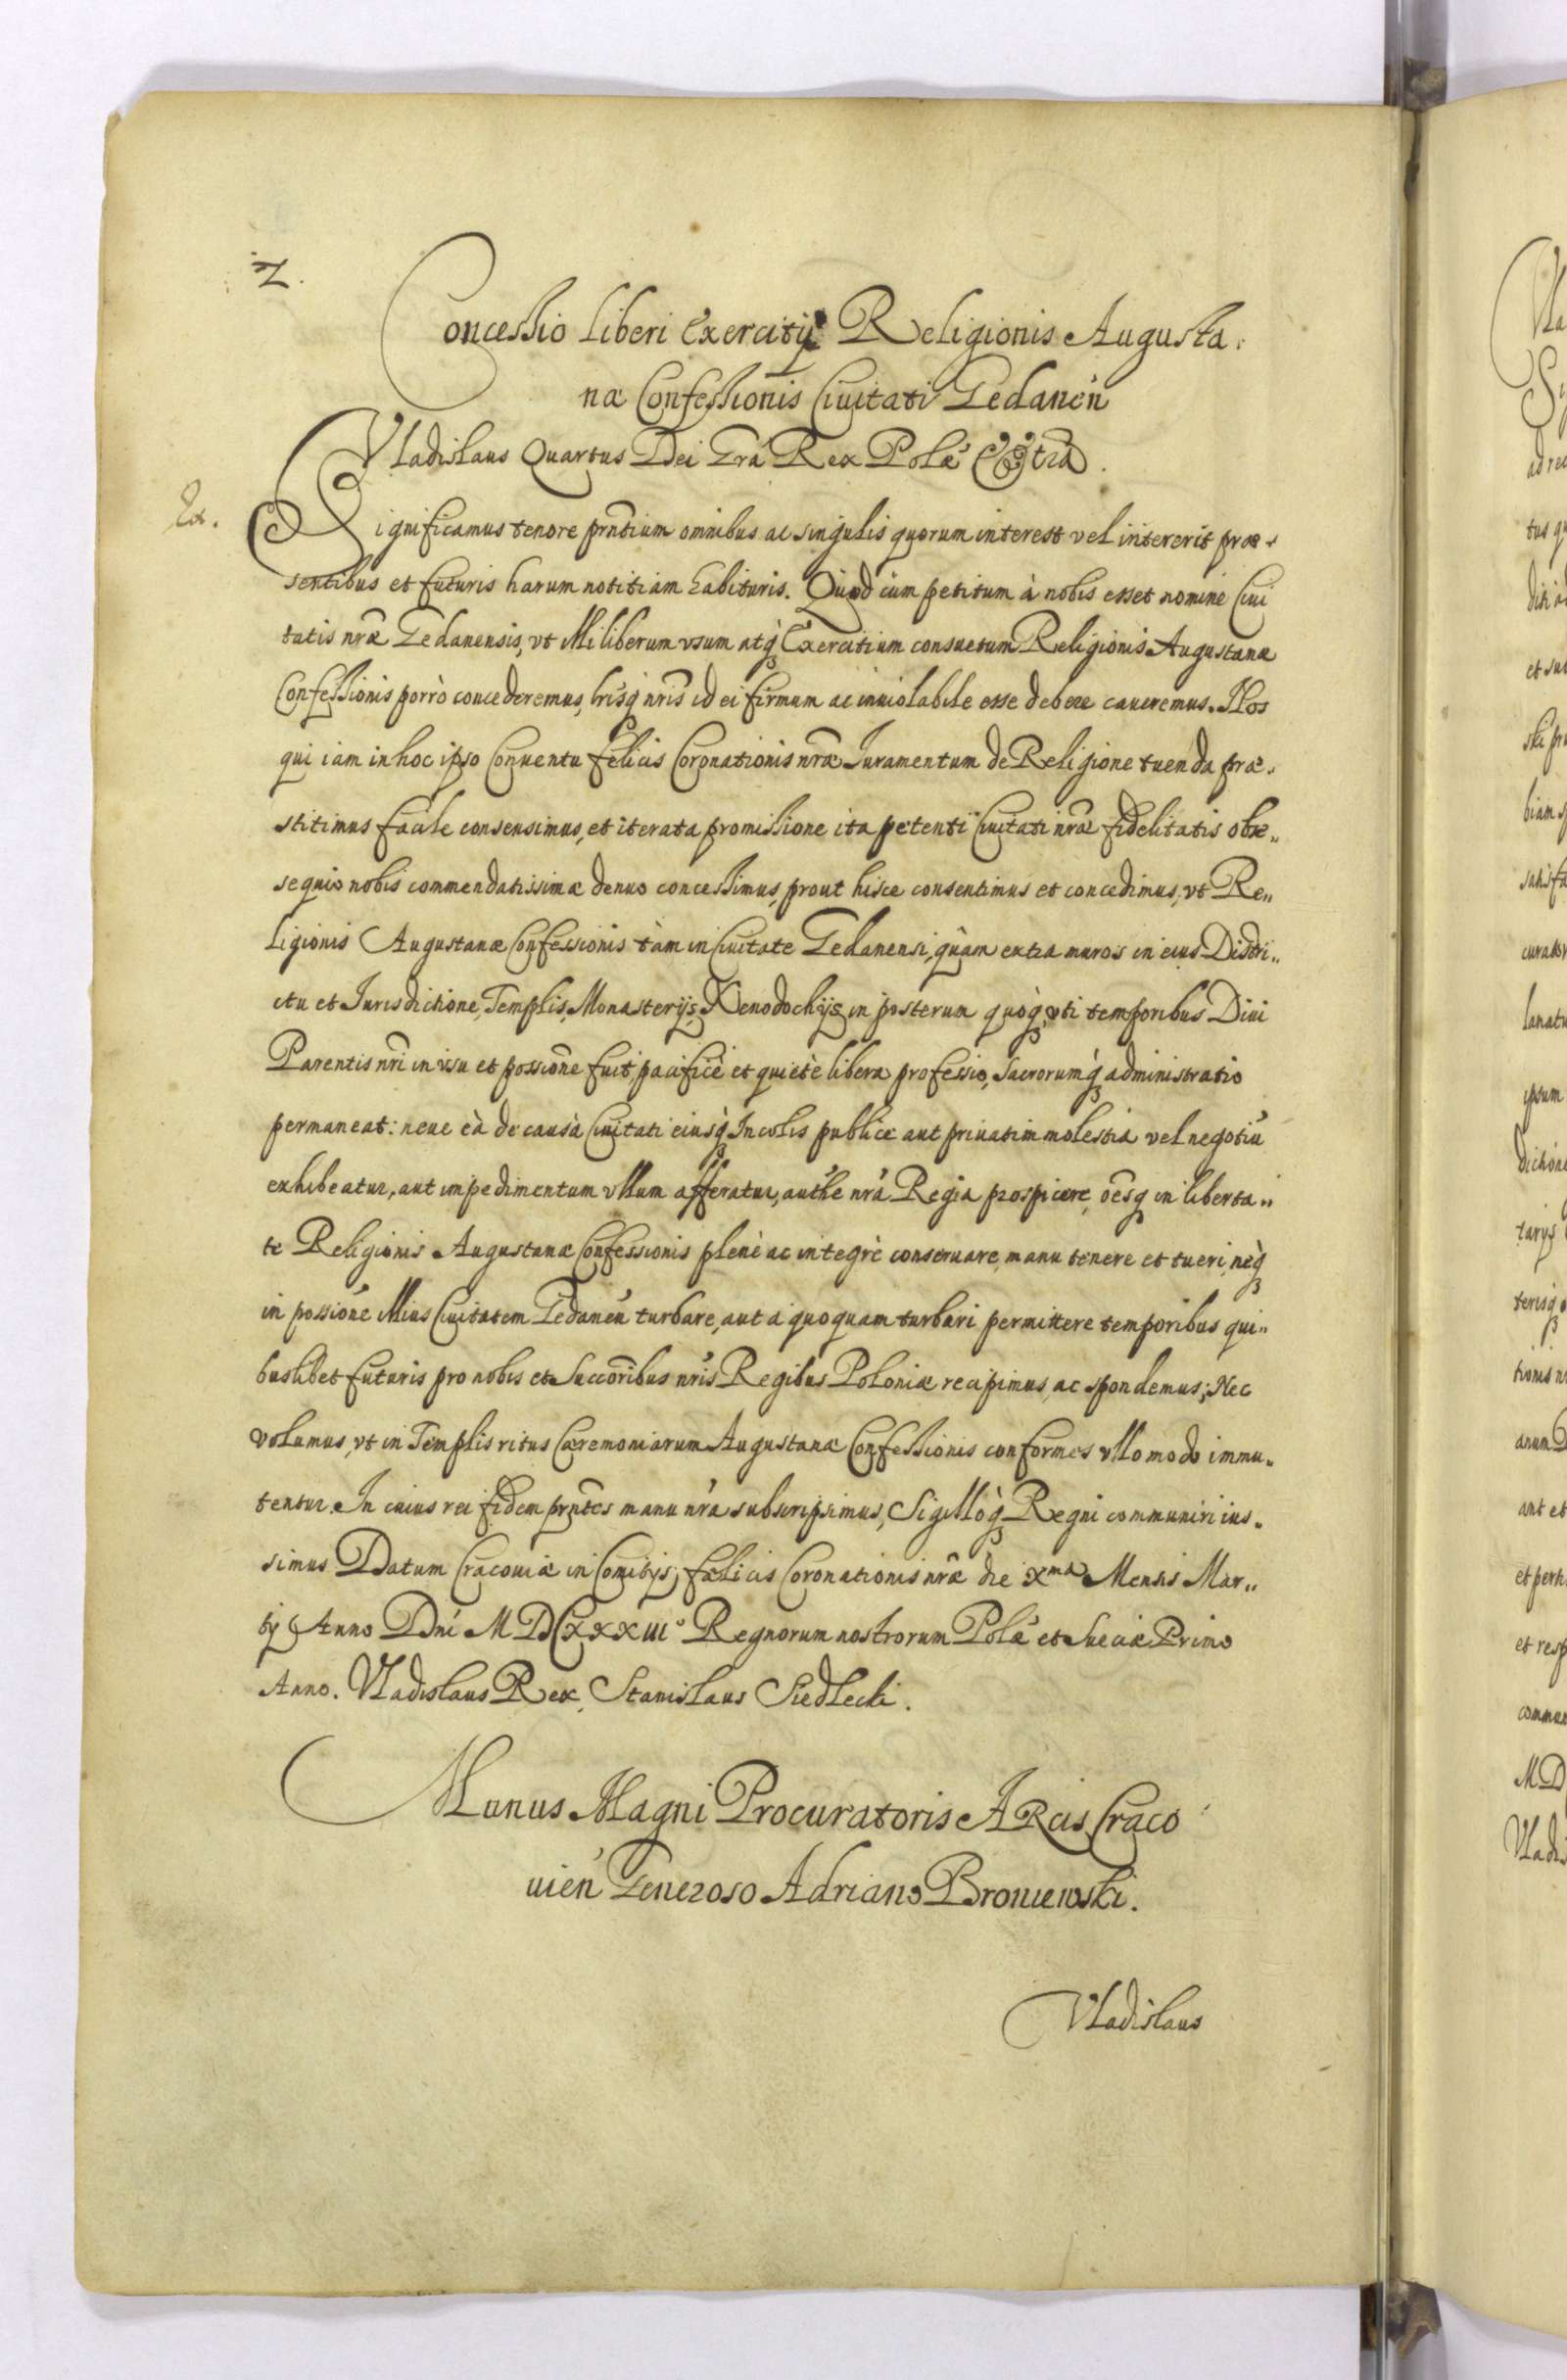 2.
Concessio liberi Exercitij Religionis Augusta.
næ Confessionis Ciuitati Gedanen̄
Vladislaus Quartus Dei Grã Rex Polæ &c
Ex.
Significamus tenore prñtium omnibus ac singulis quorum interest vel intererit præ
sentibus et futuris harum notitiam habituris. Quod cùm petitum à nobis esset nomine Ciui
tatis nr̃æ Gedanensis, vt illi liberum vsum atq́ Exercitium consuetum Religionis Augustanæ
Confessionis porrò concederemus, lr̃isq́ nr̃is id ei firmum ac inuiolabile esse debere caueremus. Nos
qui iam in hoc ipso Conuentu felicis Coronationis nr̃æ Iuramentum de Religione tuenda præ.
stitimus facile consensimus, et iterata promissione ita petenti Ciuitati nr̃æ fidelitatis obse„
sequio nobis commendatissimæ denuo concessimus, prout hisce consentimus et concedimus, vt Re„
ligionis Augustanæ Confessionis tàm in Ciuitate Gedanensi, quàm extra muros in eius Distri„
ctu et Jurisdictione, Templis, Monasterijs, Xenodochijs in posterum quoq́, vti temporibus Diui
Parentis nr̃i in vsu et possiõne fuit pacificè et quietè libera professio, Sacrorumq́ administratio
permaneat: neue eà de causà Ciuitati eiusq́ Incolis publicæ aut priuatim molestia vel negotiũ
exhibeatur, aut impedimentum vllum afferatur, authe nr̃a Regia prospicere, oẽsq́ in liberta„
te Religionis Augustanæ Confessionis plenè ac integrè conseruare, manu tenere et tueri, neq́
in possiõne illius Ciuitatem Gedanen̄ turbare, aut à quoquam turbari permittere temporibus qui„
buslibet futuris pro nobis et Succõribus nr̃is Regibus Poloniæ recipimus, ac spondemus; Nec
volumus, vt in Templis ritus Cæremoniarum Augustanæ Confessionis conformes vllo modo immu„
tentur. In cuius rei fidem prñtes manu nr̃a subscripsimus, Sigilloq́ Regni communiri ius„
simus Datum Cracouiæ in Comitijs fælicis Coronationis nr̃æ die Xma Mensis Mar„
tij Anno Dñi MDCXXXIIIo Regnorum nostrorum Polæ et Sueciæ Primo
Anno. Vladislaus Rex, Stanislaus Siedlecki.
Munus Magni Procuratoris ARcis Craco
uien̄ Generoso Adriano Broniewski.
Vladislaus